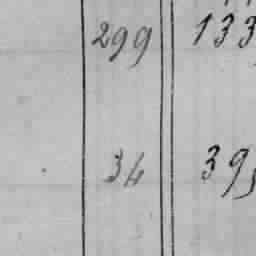 299 133
34 39